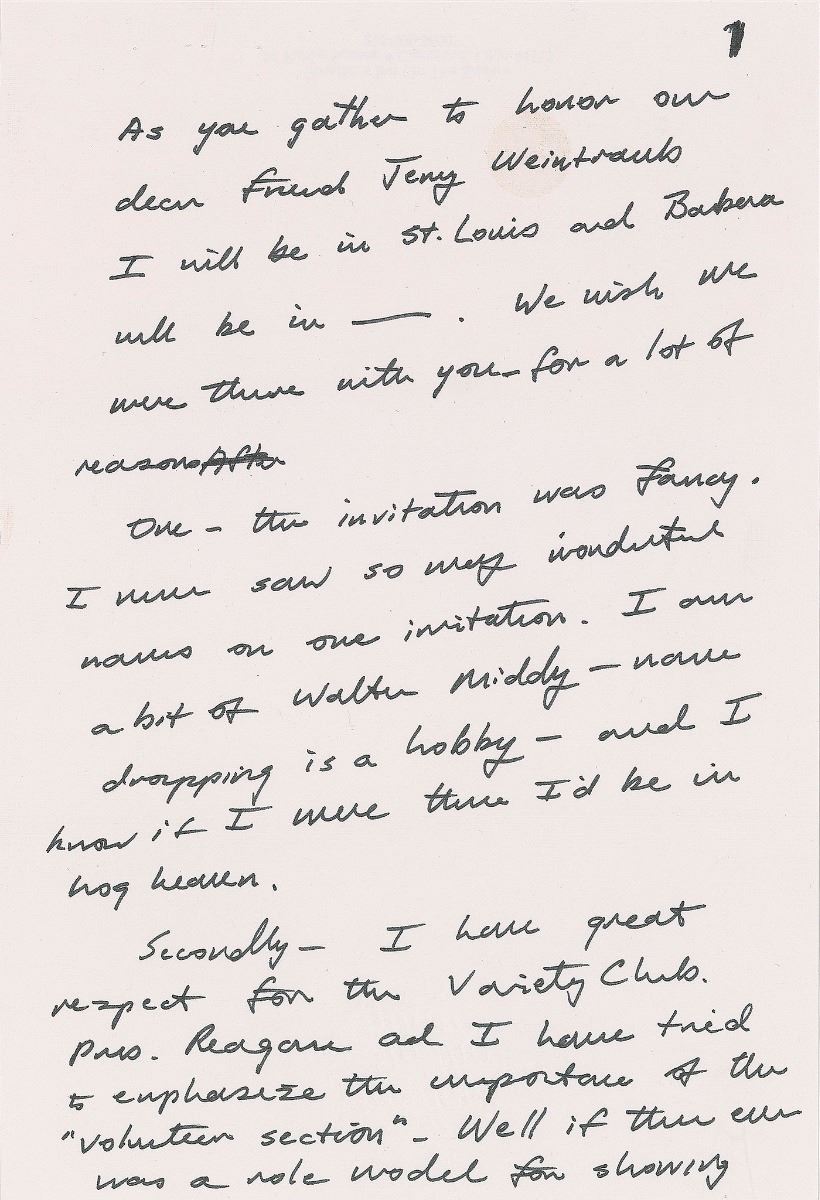 1
As you gather to honor our
dear friend Jerry Weintraub
I will be in St. Louis and Barbara
will be in —. We wish we
were there with you – for a lot of
reasons After
One – the invitation was fancy.
I never saw so many wonderful
names on one invitation. I am
a bit of Walter Middy – name
dropping is a hobby – and I
know if I were there I'd be in
hog heaven.
Secondly – I have great
respect for the Variety Club.
Pres. Reagan and I have tried
to emphasize the importance of the
"volunteer section" – Well if there ever
was a role model for showing